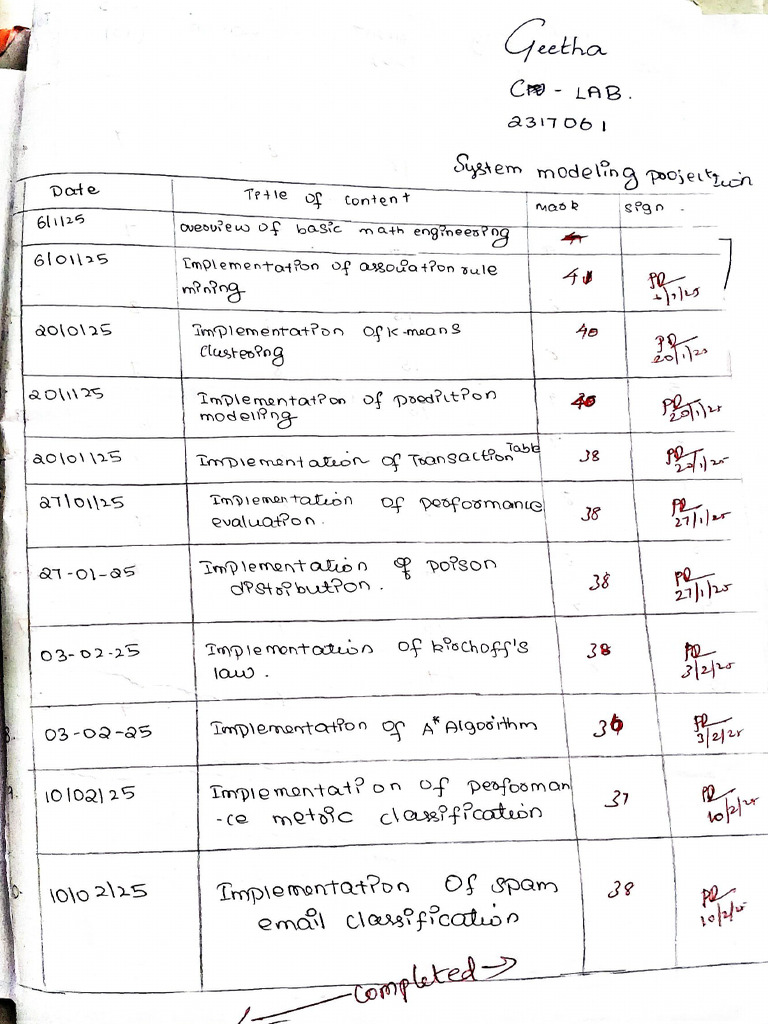 Geetha
- LAB.
2317061
System modeling
Date Title of content mark sign.
6/1/25 overview of basic math engineering
6/01/25 Implementation of association rule
mining
20/0/25 Implementation of K-means 40
clustering 20/1/25
20/1/25 Implementation of prediction
modeling 20/1/25
20/01/25 Implementation of Transaction Table 38 20/1/25
27/01/25 Implementation of performance
evaluation. 38 27/1/25
27-01-25 Implementation of poison
distribution. 38 27/1/25
03-02-25 Implementation of kirchoff's 38
law. 3/2/25
03-02-25 Implementation of A* Algorithm 36 3/2/25
10/02/25 Implementation of performan 37
-ce metric classification 10/2/25
10/02/25 Implementation Of spam 38
email classification 10/2/25
completed